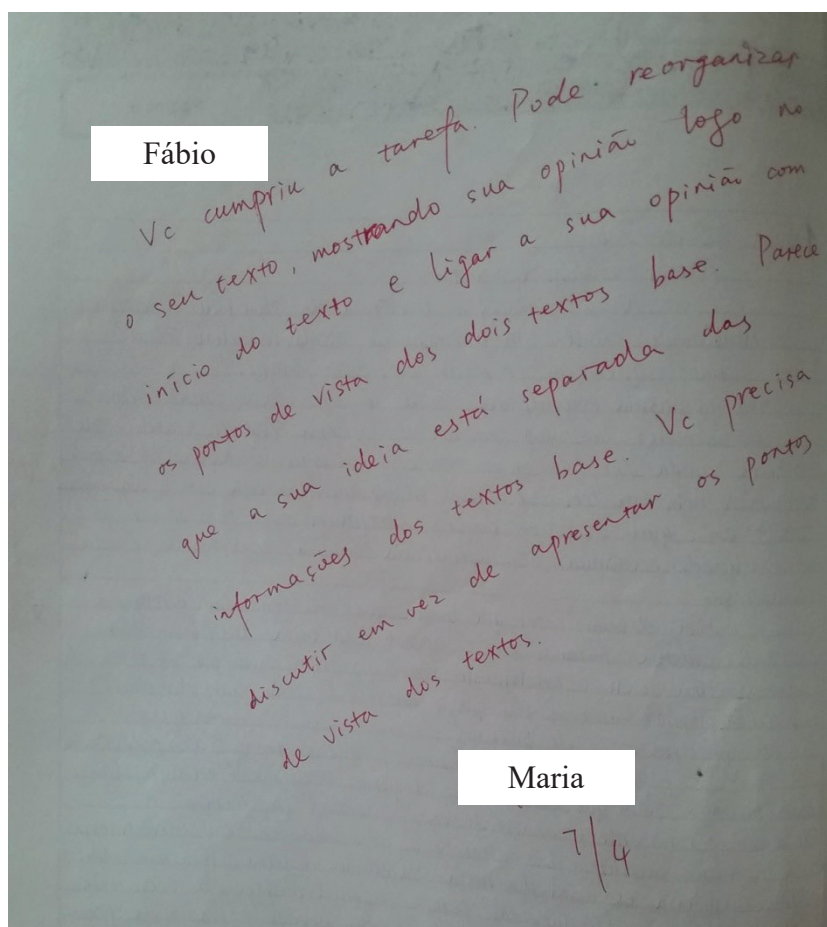 Fábio
Vc cumpriu a tarefa. Pode reorganizar
o seu texto, mostrando sua opinião logo no
início do texto e ligar a sua opinião com
os pontos de vista dos dois textos base. Parece
que a sua ideia está separada das
informações dos textos base. Vc precisa
discutir em vez de apresentar os pontos
de vista dos textos.
Maria
7/4